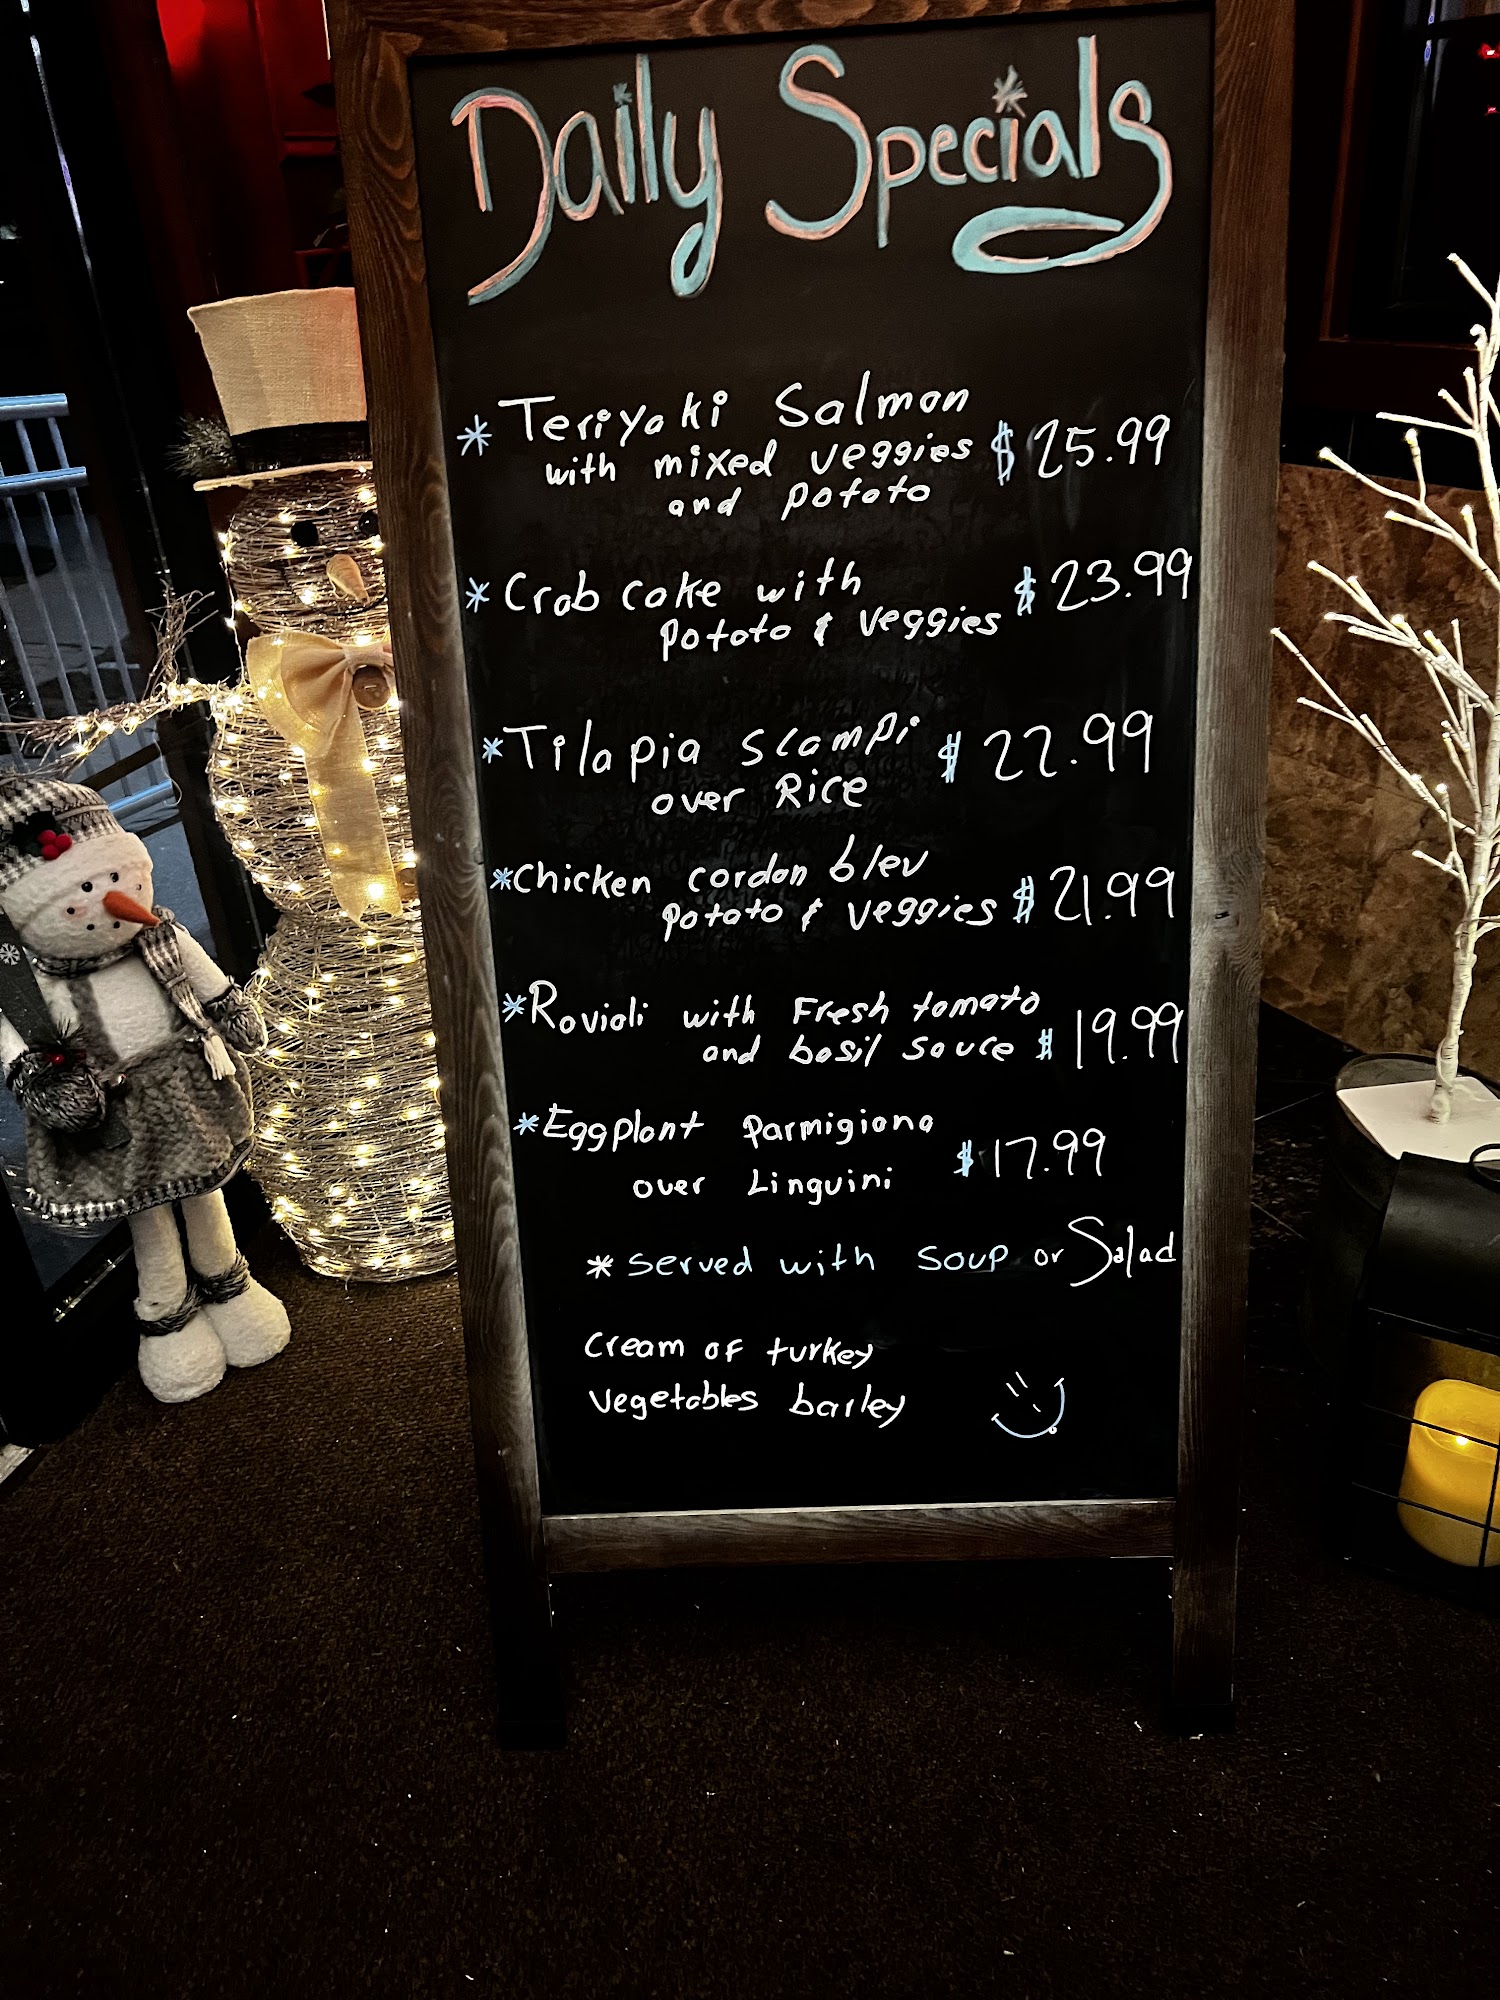 Daily Specials
* Teriyaki Salmon
with mixed veggies $ 25.99
and potato
* Crab cake with $ 23.99
potato & veggies
* Tilapia scampi $ 22.99
over Rice
* Chicken cordon bleu
potato & veggies $ 21.99
* Ravioli with Fresh tomato
and basil sauce $ 19.99
* Eggplant parmigiana
over Linguini $ 17.99
* served with soup or Salad
cream of turkey
vegetables barley